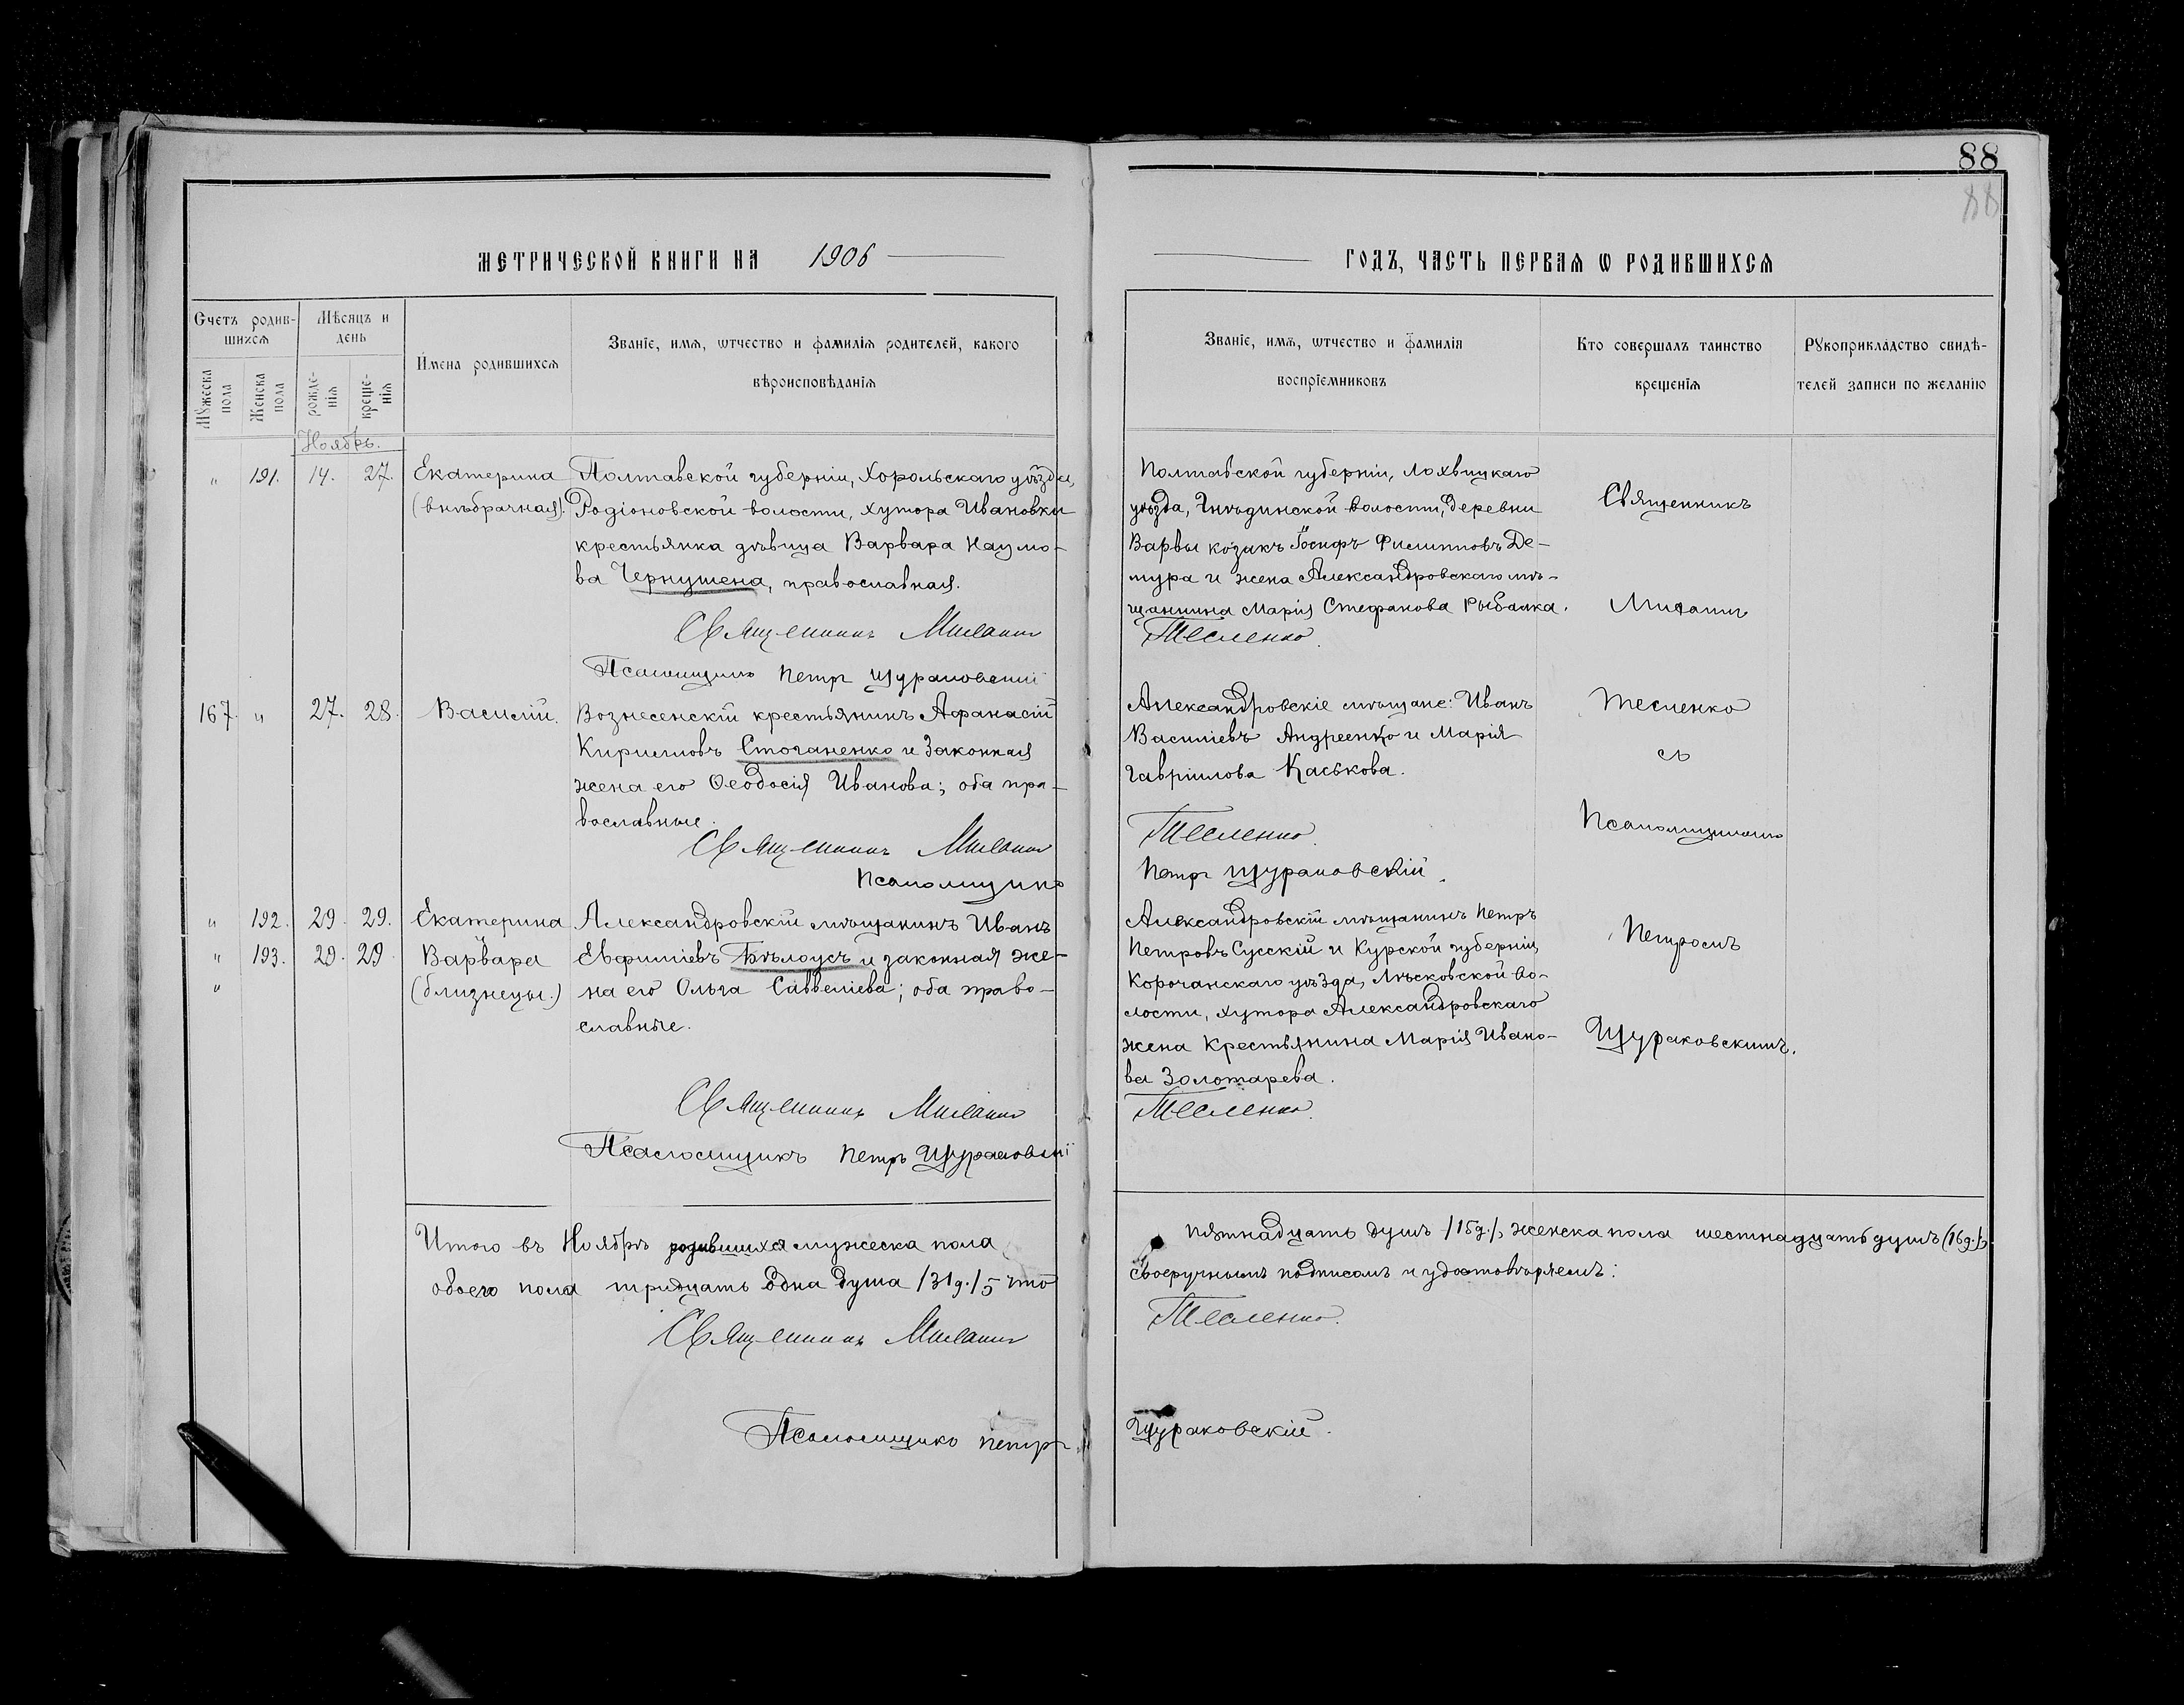 88
88
МЕТРИЧЕСКОЙ КНИГИ НА 1906
ГОДЪ, ЧАСТЬ ПЕРВАЯ Ѡ РОДИВШИХСЯ
Счетъ родившихся
Мѣсяцъ и день
Имена родившихся
Званіе, имя, ѿчество и фамилія родителей, какого
вѣроисповѣданія
Мужеска пола
Женска пола
рожденія
крещенія
Званіе, имя, ѿчество и фамилія
воспріемниковъ
Кто совершалъ таинство
крещенія
Рукоприкладство свидѣ-
телей записи по желанію
Ноябрь.
" 191. 14. 27. Екатерина Полтавской губерніи, Хорольскаго уѣзда,
(внѣбрачная). Родіоновской волости, хутора Ивановки
крестьянка дѣвица Варвара Наумо-
ва Чернушена, православная.
Священникъ Михаилъ
Псаломщикъ Петръ Щураковскій
167. " 27. 28. Василій. Вознесенскій крестьянинъ Афанасій
Кирилловъ Стоганенко и законная
жена его Ѳеодосія Иванова; оба пра-
вославные.
Священникъ Михаилъ
Псаломщикъ
" 192. 29. 29. Екатерина Александровскій мѣщанинъ Иванъ
" 193. 29. 29. Варвара Евфиміевъ Бѣлоусъ и законная же-
" (близнецы.) на его Ольга Савеліева; оба право-
славные.
Священникъ Михаилъ
Псаломщикъ Петръ Щураковскій
Итого въ Ноябрѣ родившихся мужеска пола
обоего пола тридцать одна душа /31 д./, что
Священникъ Михаилъ
Псаломщикъ Петръ
Полтавской губерніи, Лохвицкаго
уѣзда, Гнѣдинской волости, деревни
Варвы козакъ Іосифъ Филипповъ Де-
мура и жена Александровскаго мѣ-
щанина Марія Стефанова Рыбалка.
Тесленко.
Александровскіе мѣщане: Иванъ
Василіевъ Андреенко и Марія
Гавріилова Каськова.
Тесленко.
Петръ Щураковскій.
Александровскій мѣщанинъ Петръ
Петровъ Сусскій и Курской губерніи,
Корочанскаго уѣзда, Лѣсковской во-
лости, хутора Александровскаго
жена крестьянина Марія Ивано-
ва Золотарева.
Тесленко.
Священникъ
Михаилъ
Тесленко
съ
Псаломщикомъ
Петромъ
Щураковскимъ.
пятнадцать душъ /15 д./, женска пола шестнадцать душъ (16 д.),
своеручнымъ подписомъ и удостовѣряемъ:
Тесленко.
Щураковскій.